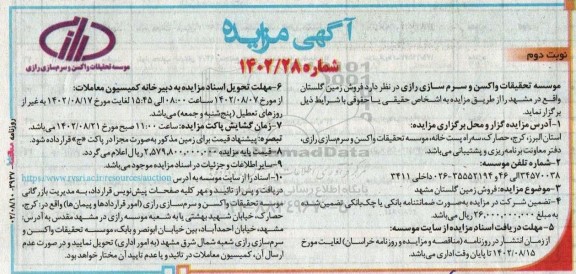 آگهی مزایده
شماره ۱۴۰۲/۲۸
نوبت دوم
موسسه تحقیقات واکسن و سرم سازی رازی
موسسه تحقیقات واکسن و سرم سازی رازی در نظر دارد فروش زمین گلستان
واقع در مشهد را از طریق مزایده به اشخاص حقیقی یا حقوقی با شرایط ذیل
برگزار نماید.
۱- آدرس مزایده گزار و محل برگزاری مزایده:
استان البرز، کرج، حصارک، سه راه پست خانه، موسسه تحقیقات واکسن و سرم سازی رازی،
دفتر معاونت برنامه ریزی و پشتیبانی می باشد.
۲- شماره تلفن موسسه:
۳۴۵۷۰۰۳۸ الی ۴۶ و ۳۵۵۵۲۱۹۴-۰۲۶ داخلی ۳۴۱۱
۳- موضوع مزایده: فروش زمین گلستان مشهد
۴- تضمین شرکت در مزایده به صورت ضمانتنامه بانکی یا چک بانکی تضمین شده
به مبلغ ۲۶,۰۰۰,۰۰۰,۰۰۰ ریال می باشد.
۵- مهلت دریافت اسناد مزایده از سایت موسسه:
از زمان انتشار در روزنامه (مناقصه و مزایده و روزنامه خراسان) لغایت مورخ
۱۴۰۲/۰۸/۱۵ تا پایان وقت اداری می باشد.
۶- مهلت تحویل اسناد مزایده به دبیرخانه کمیسیون معاملات:
از مورخ ۱۴۰۲/۰۸/۰۷ ساعت ۰۸:۰۰ الی ۱۵:۴۵ لغایت ۱۴۰۲/۰۸/۱۷ به غیر از
روزهای تعطیل (پنج شنبه و جمعه) می باشد.
۷- زمان گشایش پاکت مزایده: ساعت ۱۱:۰۰ صبح مورخ ۱۴۰۲/۰۸/۲۱ می باشد.
تبصره: پیشنهاد قیمت برای زمین مذکور به صورت مجزا در پاکت «ج» قرار داده شود.
۸- قیمت پایه مزایده ریال اعلام می گردد.
۹- سایر اطلاعات و جزئیات در اسناد مزایده موجود می باشد.
۱۰- اسناد را از سایت موسسه به آدرس https://www.rvsri.ac.ir/resources/auction
دریافت و پس از تائید و مهر کلیه صفحات پیش نویس قرارداد، به مدیریت بازرگانی
موسسه تحقیقات واکسن و سرم سازی رازی (امور قراردادها و پیمان ها) واقع در: کرج،
حصارک، خیابان شهید بهشتی یا به شعبه موسسه رازی در مشهد مقدس به آدرس:
مشهد، خیابان احمدآباد، بین خیابان ابوذر و بابک، موسسه تحقیقات واکسن و
سرم سازی رازی شعبه شمال شرق مشهد (به امور اداری) تحویل نمایید و در صورت عدم
ارسال آن، کمیسیون معاملات در تائید و یا عدم تایید آن مختار خواهد بود.